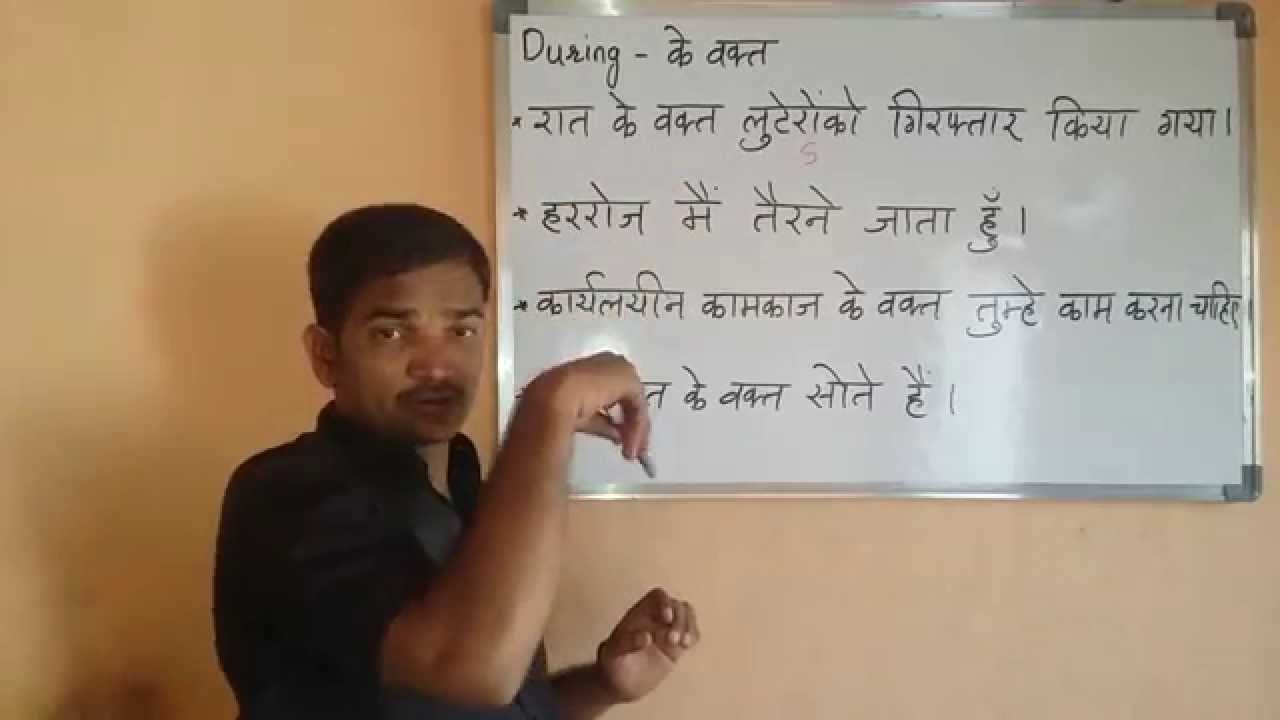 During - के वक्त
* रात के वक्त लुटेरोंको गिरफ्तार किया गया।
S
* हररोज मैं तैरने जाता हूँ।
* कार्यलयीन कामकाज के वक्त तुम्हे काम करना चहिए।
के वक्त सोते हैं।